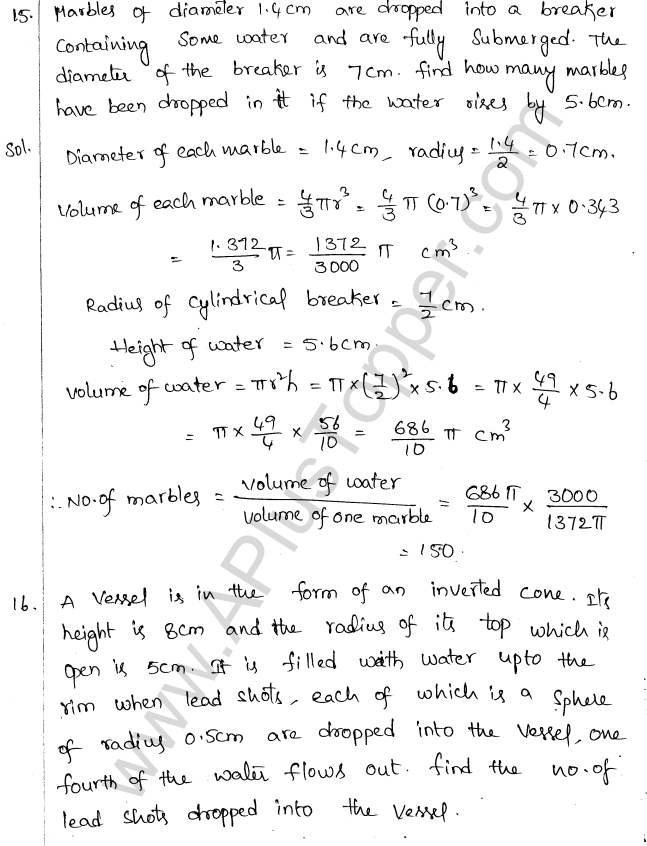 15. Marbles of diameter 1.4cm are dropped into a breaker
Containing Some water and are fully Submerged. The
diameter of the breaker is 7cm. find how many marbles
have been dropped in it if the water rises by 5.6cm.
Sol. Diameter of each marble = 1.4cm, radius = 1.4/2 = 0.7cm.
Volume of each marble = 4/3 πr³ = 4/3 π (0.7)³ = 4/3 π × 0.343
= 1.372/3 π = 1372/3000 π cm³
Radius of cylindrical breaker = 7/2 cm.
Height of water = 5.6cm.
Volume of water = πr²h = π × (7/2)² × 5.6 = π × 49/4 × 5.6
= π × 49/4 × 56/10 = 686/10 π cm³
∴ No. of marbles = volume of water / volume of one marble = 686π/10 × 3000/1372π
= 150.
16. A Vessel is in the form of an inverted cone. Its
height is 8cm and the radius of its top which is
open is 5cm. It is filled with water upto the
rim when lead shots, each of which is a Sphere
of radius 0.5cm are dropped into the Vessel, one
fourth of the water flows out. find the no. of
lead shots dropped into the Vessel.
www.APlusTopper.com